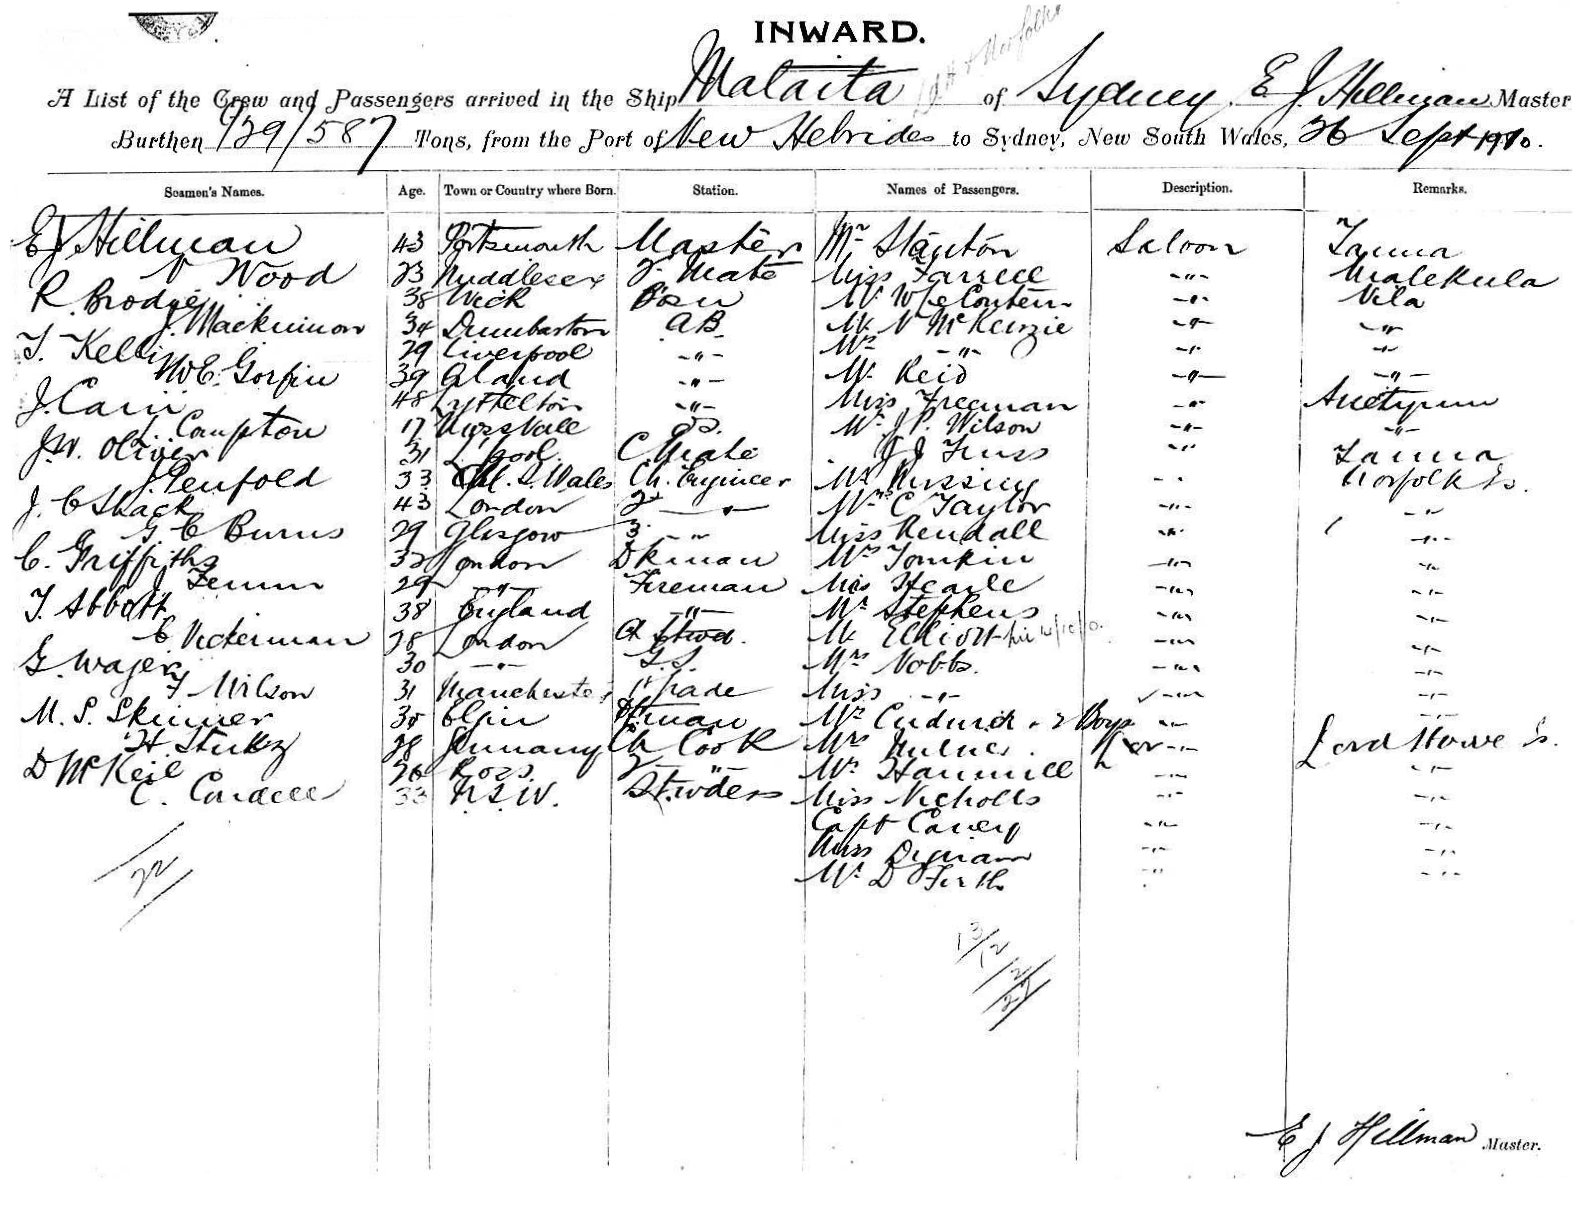 INWARD.
A List of the Crew and Passengers arrived in the Ship Malaita of Sydney E J Hillman Master
Burthen 929/587 Tons, from the Port of New Hebrides to Sydney, New South Wales, 26 Sept 1910.
Seamen's Names. Age. Town or Country where Born. Station. Names of Passengers. Description. Remarks.
E J Hillman 43 Portsmouth Master Mr Stanton Saloon Tanna
V Wood 23 Middlesex 2 Mate Miss Farrell -"- Malekula
R. Brodie 38 Wick Bosn Mr W -"- Vila
J. Mackinnon 34 Dumbarton AB Mr N McKenzie -"- -"-
T. Kelli 29 Liverpool -"- Mrs -"- -"- -"-
W E. Gorfin 39 -"- Mr Reid -"- -"-
J. Cain 48 Lyttelton -"- Miss Freeman -"-
Compton 17 OS. Mr J. P. Wilson -"- -"-
J. W. Oliver 31 L'pool. C. Mate J J -"- Tanna
J. Penfold 33 N. S. Wales Ch. Engineer Norfolk Is.
J. C Shack 43 London 2 -"- Mrs C Taylor -"- -"-
G C Burns 29 Glasgow 3 -"- Miss Kendall -"- -"-
C. Griffiths 32 London Dkman Mrs Tomkin -"- -"-
29 -"- Fireman Miss Hearle -"- -"-
T. Abbott 38 England -"- Mr Stephens -"- -"-
C Vickerman 28 London Mr Elliott -"- -"-
G. Wager 30 -"- Mrs Nobbs. -"- -"-
F Wilson 31 Manchester Miss -"- -"- -"-
M. S. Skinner 30 Elgin 2 Boys -"- -"-
H. 28 Germany Ch Cook Mrs Milne. -"- Lord Howe Is.
D McKeil 26 Ross. 2 -"- Mr Hammill -"- -"-
C. Cordell 33 N. S. W. Stwdess Miss Nicholls -"- -"-
Capt -"- -"-
Miss Dignam -"- -"-
Mr D Firth -"- -"-
22
13/12
2
27
E J Hillman Master.